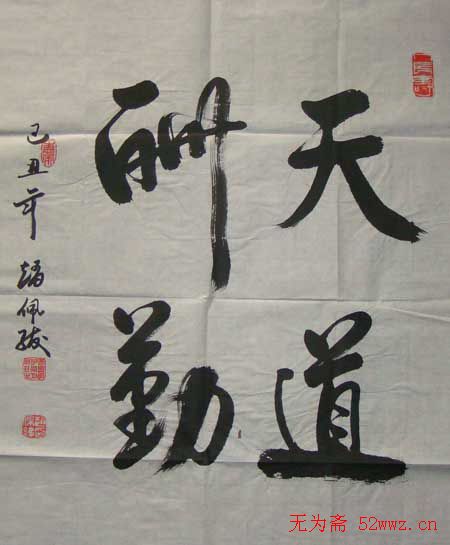 天道
酬勤
己丑年 趙佩璇
无为斋 52wwz.cn